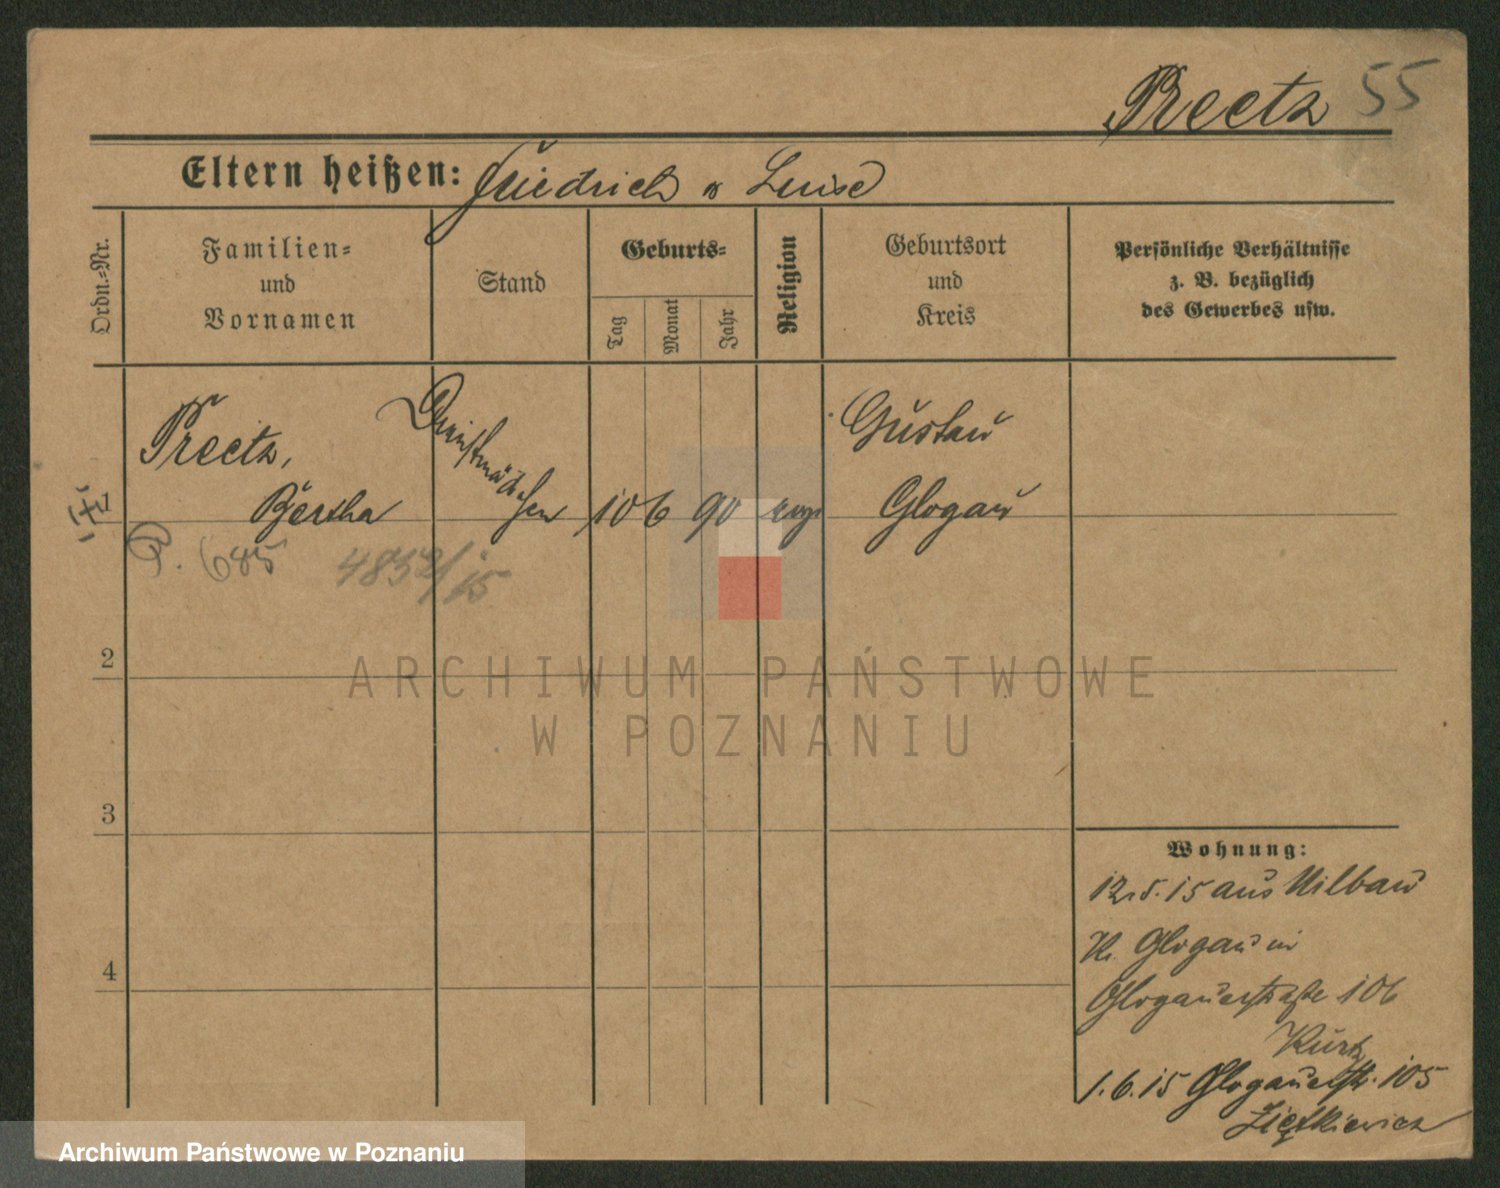 Preetz 55
Eltern heißen: Friedrich u Luise
Ordn.-Nr.
Familien-
und
Vornamen
Stand
Geburts-
Tag
Monat
Jahr
Religion
Geburtsort
und
Kreis
Persönliche Verhältnisse
z. B. bezüglich
des Gewerbes usw.
1
Preetz,
Bertha
Dienstmädchen
10 6 90
evg.
Gustau
Glogau
P. 685
4832/15
2
3
4
Wohnung:
12.5.15 aus Nilbau
Kr. Glogau in
Glogauerstraße 106
Kurtz
1.6.15 Glogauerstr. 105
Ziętkiewicz
ARCHIWUM PAŃSTWOWE
W POZNANIU
Archiwum Państwowe w Poznaniu